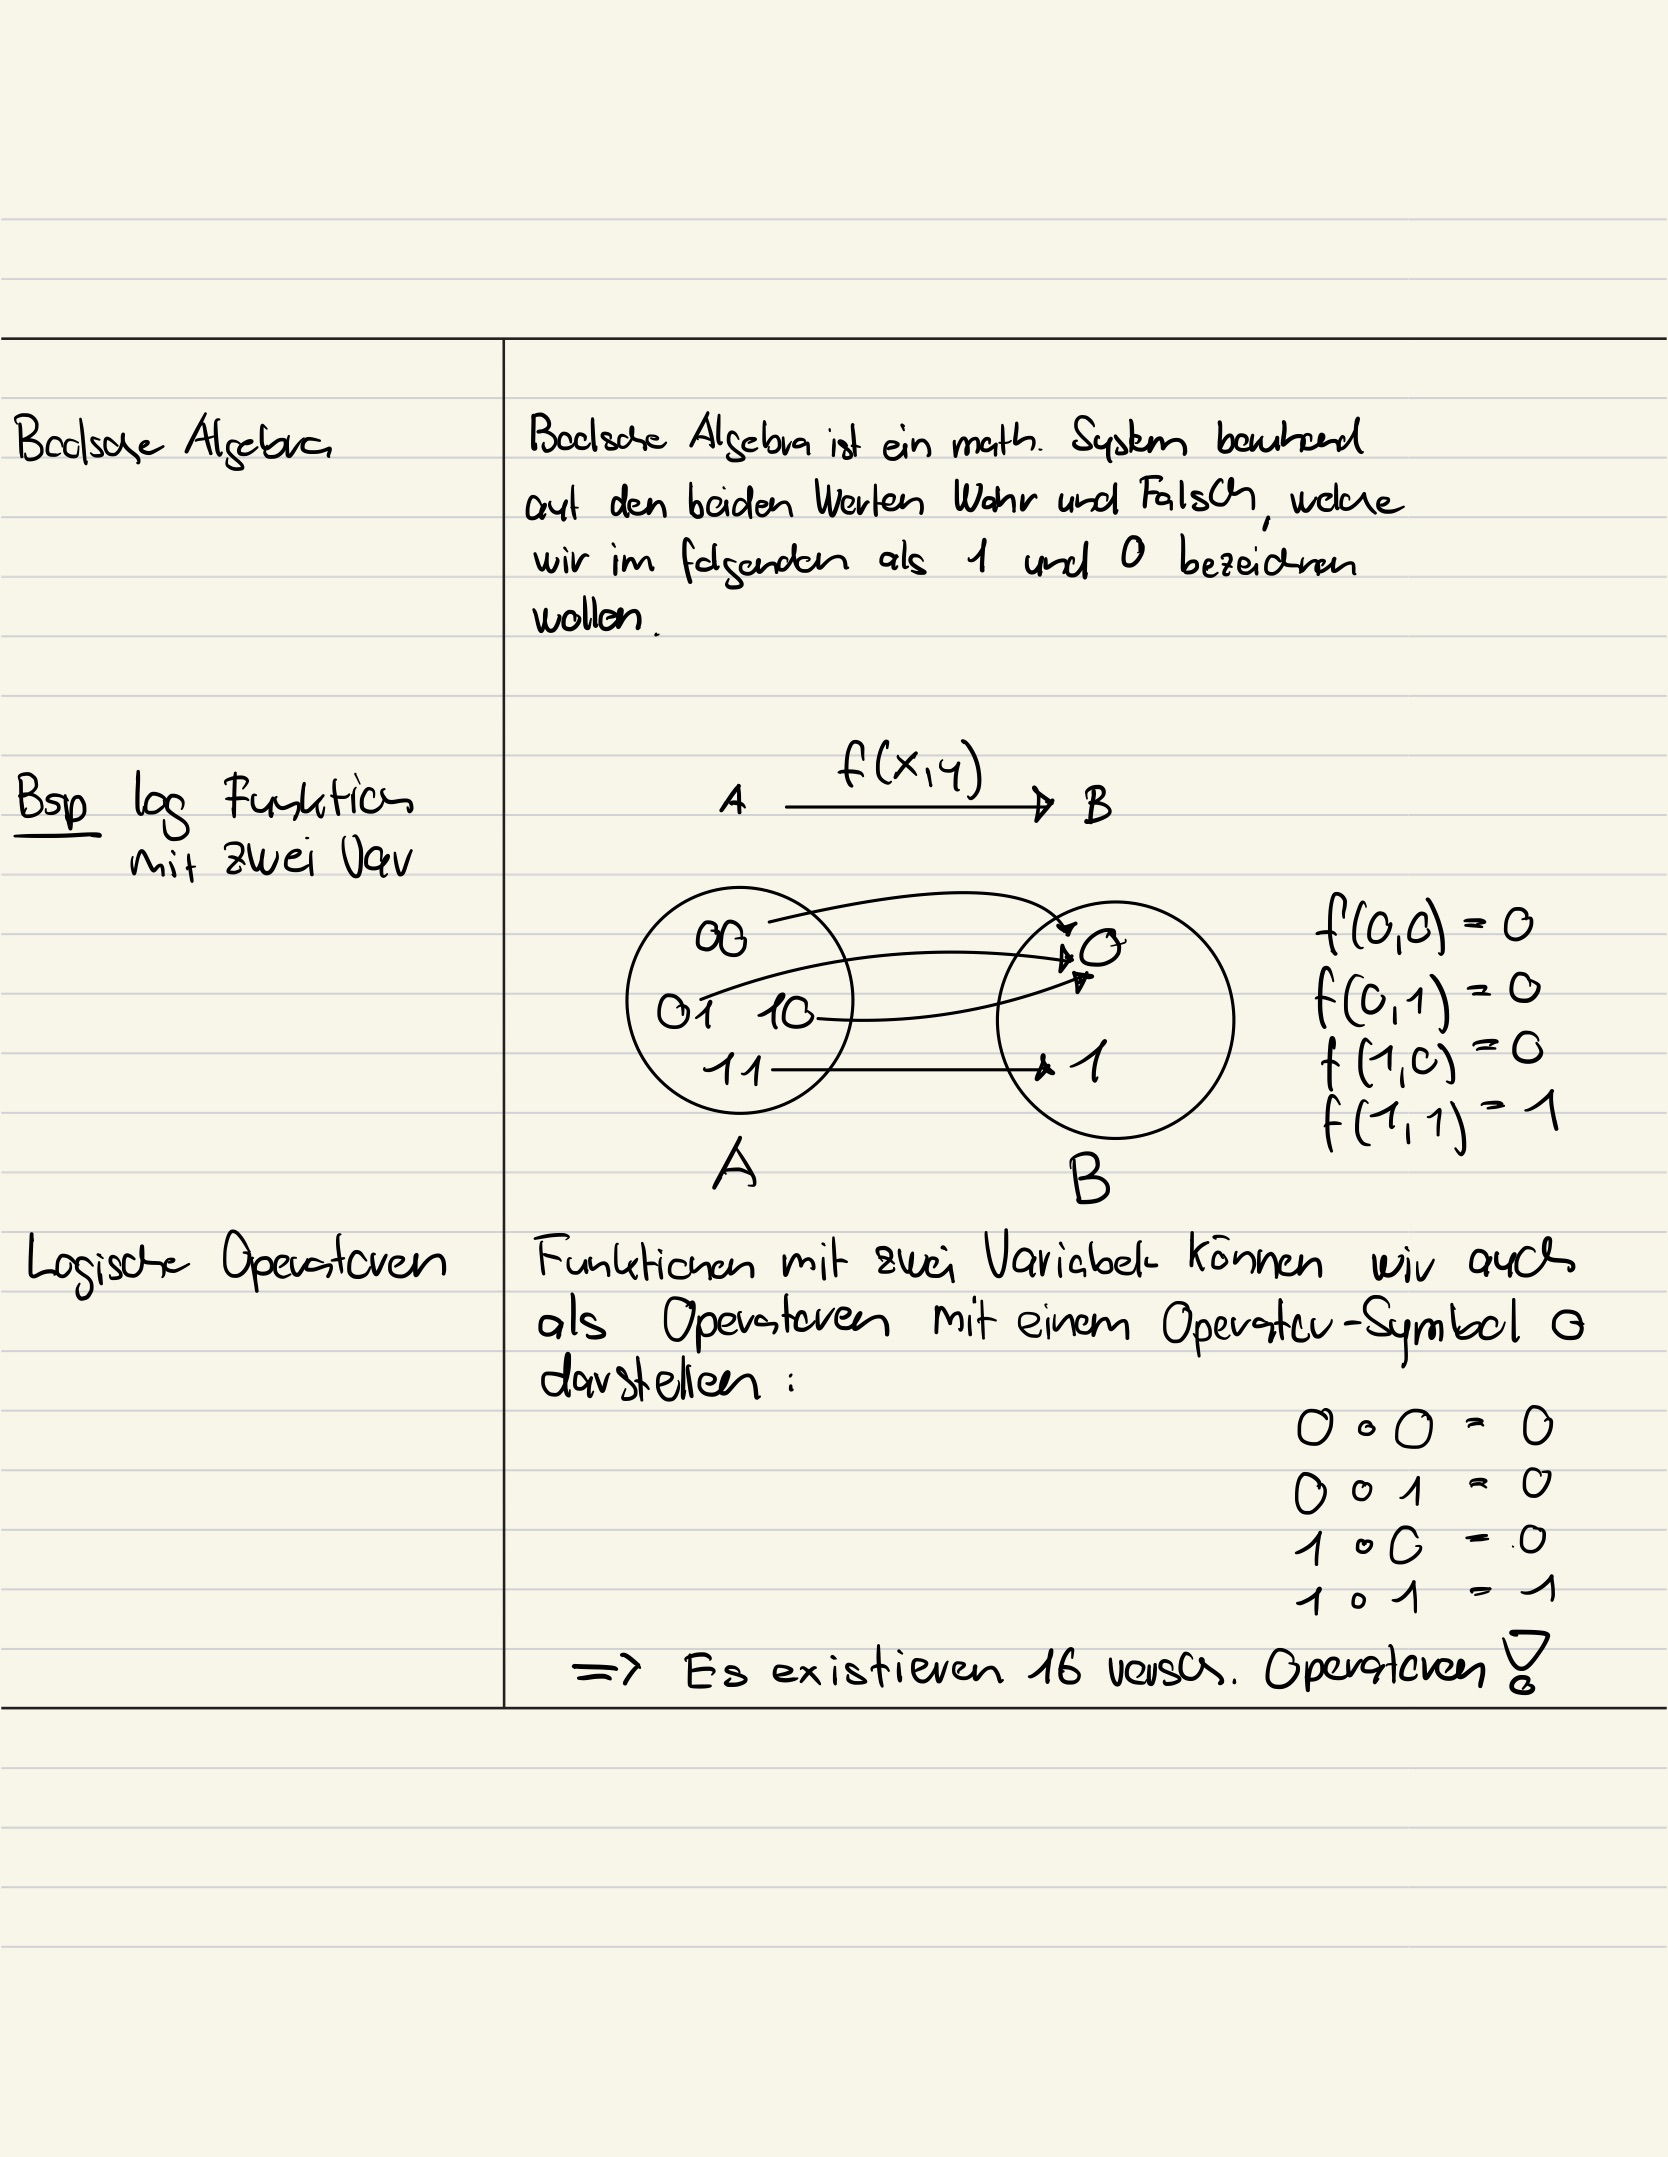 Boolsche Algebra
Boolsche Algebra ist ein math. System beruhend
auf den beiden Werten Wahr und Falsch, welche
wir im folgenden als 1 und 0 bezeichnen
wollen.
Bsp log Funktion
mit zwei Var
f(x,y)
A B
00
01 10
11
A
0
1
B
f(0,0) = 0
f(0,1) = 0
f(1,0) = 0
f(1,1) = 1
Logische Operatoren
Funktionen mit zwei Variabeln können wir auch
als Operatoren mit einem Operator-Symbol ∘
darstellen:
0 ∘ 0 = 0
0 ∘ 1 = 0
1 ∘ 0 = 0
1 ∘ 1 = 1
=> Es existieren 16 versch. Operatoren!